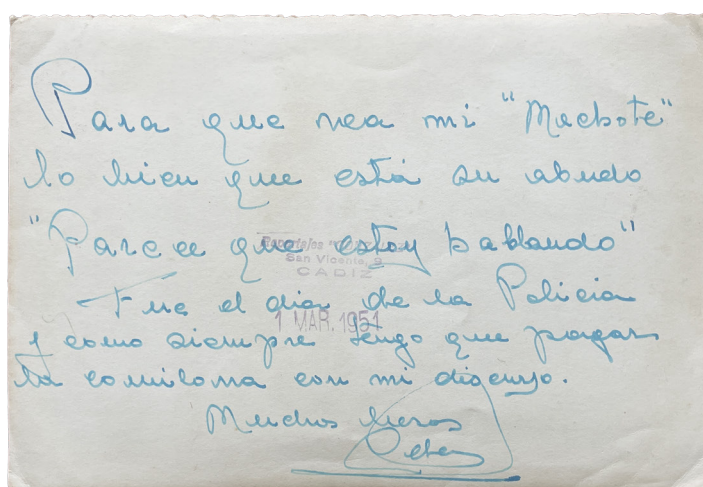 Para que vea mi "Macbote"
lo bien que está su abuelo
"Parece que estoy hablando"
Reportajes
San Vicente, 9
CADIZ
Fue el dia de la Policia
1 MAR. 1951
y como siempre tengo que pagar
la comilona con mi discurso.
Muchos besos